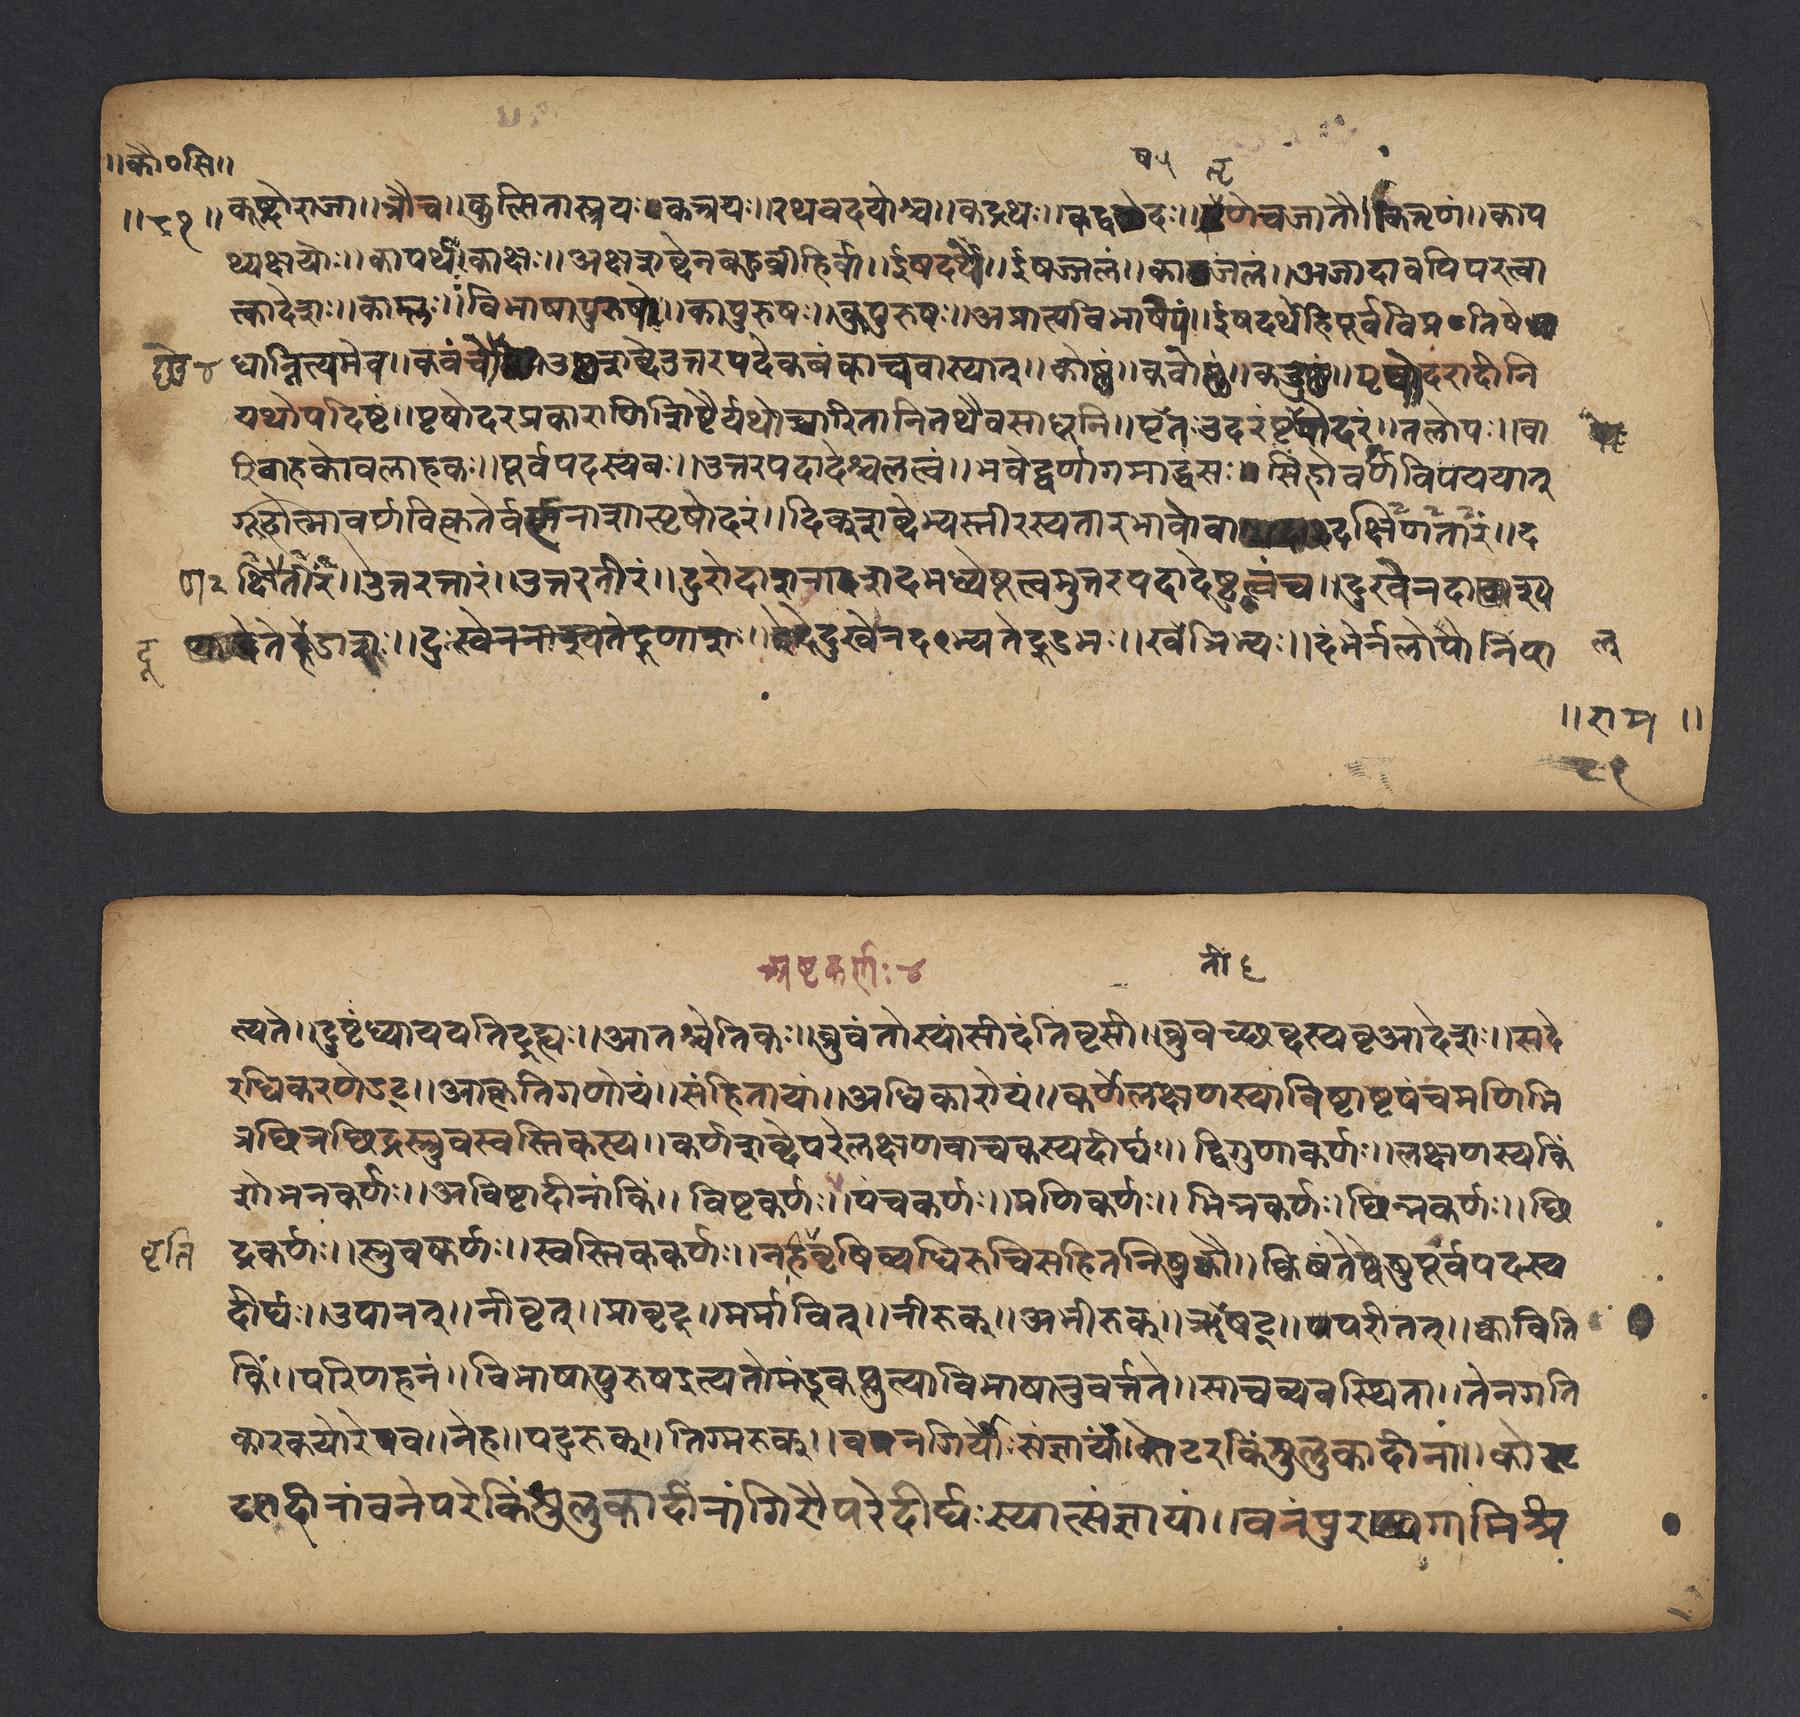 ॥कौ०सि॥
॥८१॥
ष५
कष्टोराजा॥त्रौच॥कुत्सितास्त्रयःकत्त्रयः॥रथवदयोश्च॥कद्रथः॥कद्वदः॥तृणेचजातौ॥कत्तृणं॥काप
थ्यक्षयोः॥कापथंकाक्षः॥अक्षशब्देनबहुव्रीहिर्वा॥ईषदर्थे॥ईषज्जलं॥काजलं॥अजादावपिपरत्वा
त्कादेशः॥काम्लः॥विभाषापुरुषे॥कापुरुषः॥कुपुरुषः॥अप्राप्तविभाषेयं॥ईषदर्थेहिपूर्वविप्रतिषे
धान्नित्यमेव॥कवंचोष्णे॥उष्णशब्देउत्तरपदेकवंकाचवास्यात्॥कोष्णं॥कवोष्णं॥कदुष्णं॥पृषोदरादीनि
यथोपदिष्टं॥पृषोदरप्रकाराणिशिष्टैर्यथोच्चारितानितथैवसाधूनि॥पृषतःउदरंपृषोदरं॥तलोपः॥वा
रिवाहकोवलाहकः॥पूर्वपदस्यबः॥उत्तरपदादेश्चलत्वं॥भवेद्वर्णागमाद्धंसःसिंहोवर्णविपर्ययात्
गूढोत्मावर्णविकृतेर्वर्णनाशात्पृषोदरं॥दिक्शब्देभ्यस्तीरस्यतारभावोवादक्षिणतारं॥द
ण२ क्षिणतीरं॥उत्तरत्तारं॥उत्तरतीरं॥दुरोदाशनाशदभध्येषूत्वमुत्तरपदादेष्टुत्वंच॥दुःखेनदाश्य
तेदूडाशः॥दुःखेननाश्यतेदूणाशः॥दुखेनदभ्यतेदूडभः॥खल्त्रिभ्यः॥दंभेर्नलोपोनिपा
॥राम॥
८१
अष्टकर्णः४
ती६
त्यते॥दुष्टंध्यायतीतिदूढ्यः॥आतश्चेतिकः॥ब्रुवंतोस्यांसीदंतिबृसी॥ब्रुवच्छब्दस्यबृआदेशः॥सदे
रधिकरणेडट्॥आकृतिगणोयं॥संहितायां॥अधिकारोयं॥कर्णेलक्षणस्याविष्टाष्टपंचमणिभि
न्नछिन्नछिद्रस्रुवस्वस्तिकस्य॥कर्णशब्देपरेलक्षणवाचकस्यदीर्घः॥द्विगुणाकर्णः॥लक्षणस्यकिं
शोभनकर्णः॥अविष्टादीनांकिं॥विष्टकर्णः॥पंचकर्णः॥मणिकर्णः॥भिन्नकर्णः॥छिन्नकर्णः॥छि
द्रकर्णः॥स्रुवकर्णः॥स्वस्तिककर्णः॥नहिवृषिव्यधिरुचिसहितनिषुक्वौ॥क्विबंतेष्वेषुपूर्वपदस्य
वृति
दीर्घः॥उपानत्॥नीवृत्॥प्रावृट्॥मर्मावित्॥नीरुक्॥अभीरुक्॥ऋतीषट्॥परीतत्॥क्वाविति
किं॥परिणहनं॥विभाषापुरुषइत्यतोमंडूकप्लुत्याविभाषानुवर्त्तते॥साचव्यवस्थिता॥तेनगति
कारकयोरेव॥नेह॥पटुरुक्॥तिग्मरुक्॥वनगिर्योःसंज्ञायांकोटरकिंशुलुकादीनां॥कोट
रादीनांवनेपरेकिंशुलुकादीनांगिरौपरेदीर्घःस्यात्संज्ञायां॥वनंपुरगामिश्र